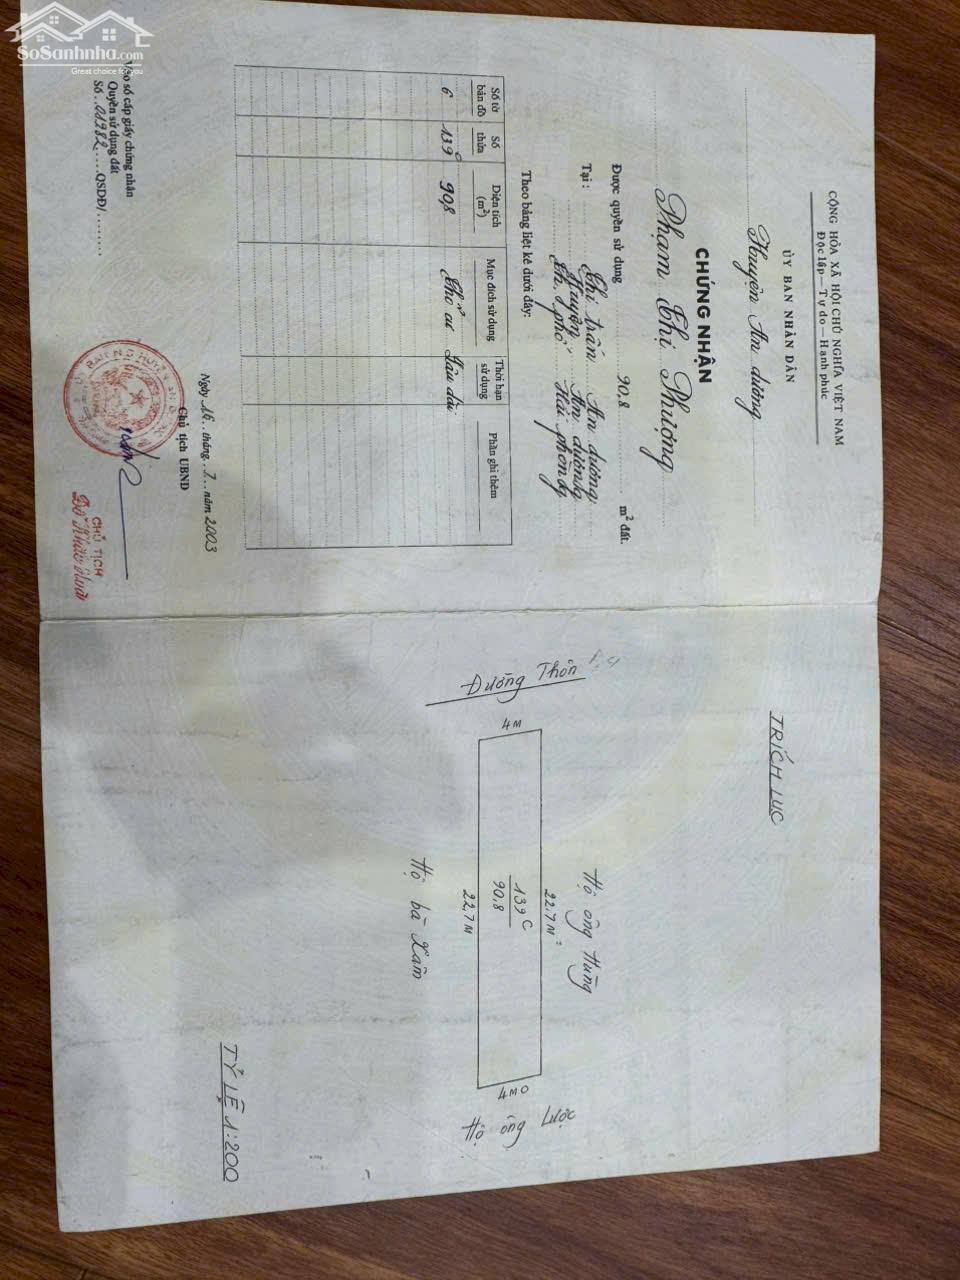 SoSanhnha.com
Great choice for you
CỘNG HÒA XÃ HỘI CHỦ NGHĨA VIỆT NAM
Độc lập — Tự do — Hạnh phúc
ỦY BAN NHÂN DÂN
Huyện An dương
CHỨNG NHẬN
Phạm Thị Phượng
Được quyền sử dụng 90,8 m² đất.
Tại: Thị trấn An dương
Huyện An dương
Th. phố Hải phòng
Theo bảng liệt kê dưới đây:
Số tờ bản đồ Số thửa Diện tích (m²) Mục đích sử dụng Thời hạn sử dụng Phần ghi thêm
6 139C 90,8 Thổ cư Lâu dài
Ngày 16 tháng 7 năm 2003
Chủ tịch UBND
Vào sổ cấp giấy chứng nhận
Quyền sử dụng đất
Số 01982 QSDĐ/
CHỦ TỊCH
TRÍCH LỤC
Đường Thôn
4M
Hộ ông Hùng
22.7M
139C
90.8
22,7M
Hộ bà Xâm
4M0
Hộ ông Lược
TỶ LỆ 1:200